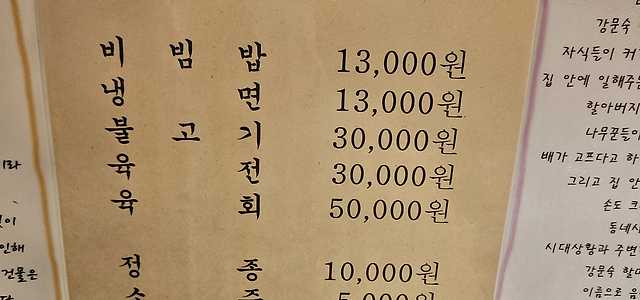 비 빔 밥 13,000원
냉 면 13,000원
불 고 기 30,000원
육 전 30,000원
육 회 50,000원
정 종 10,000원
5,000원
강문숙
자식들이 커
집 안에 일해주는
할아버지
나무꾼들이
배가 고프다고 하
그리고 집 안
손도 크
동네사
시대상황과 주변
강문숙 할머
이름으로 음
이라
인해
건물은